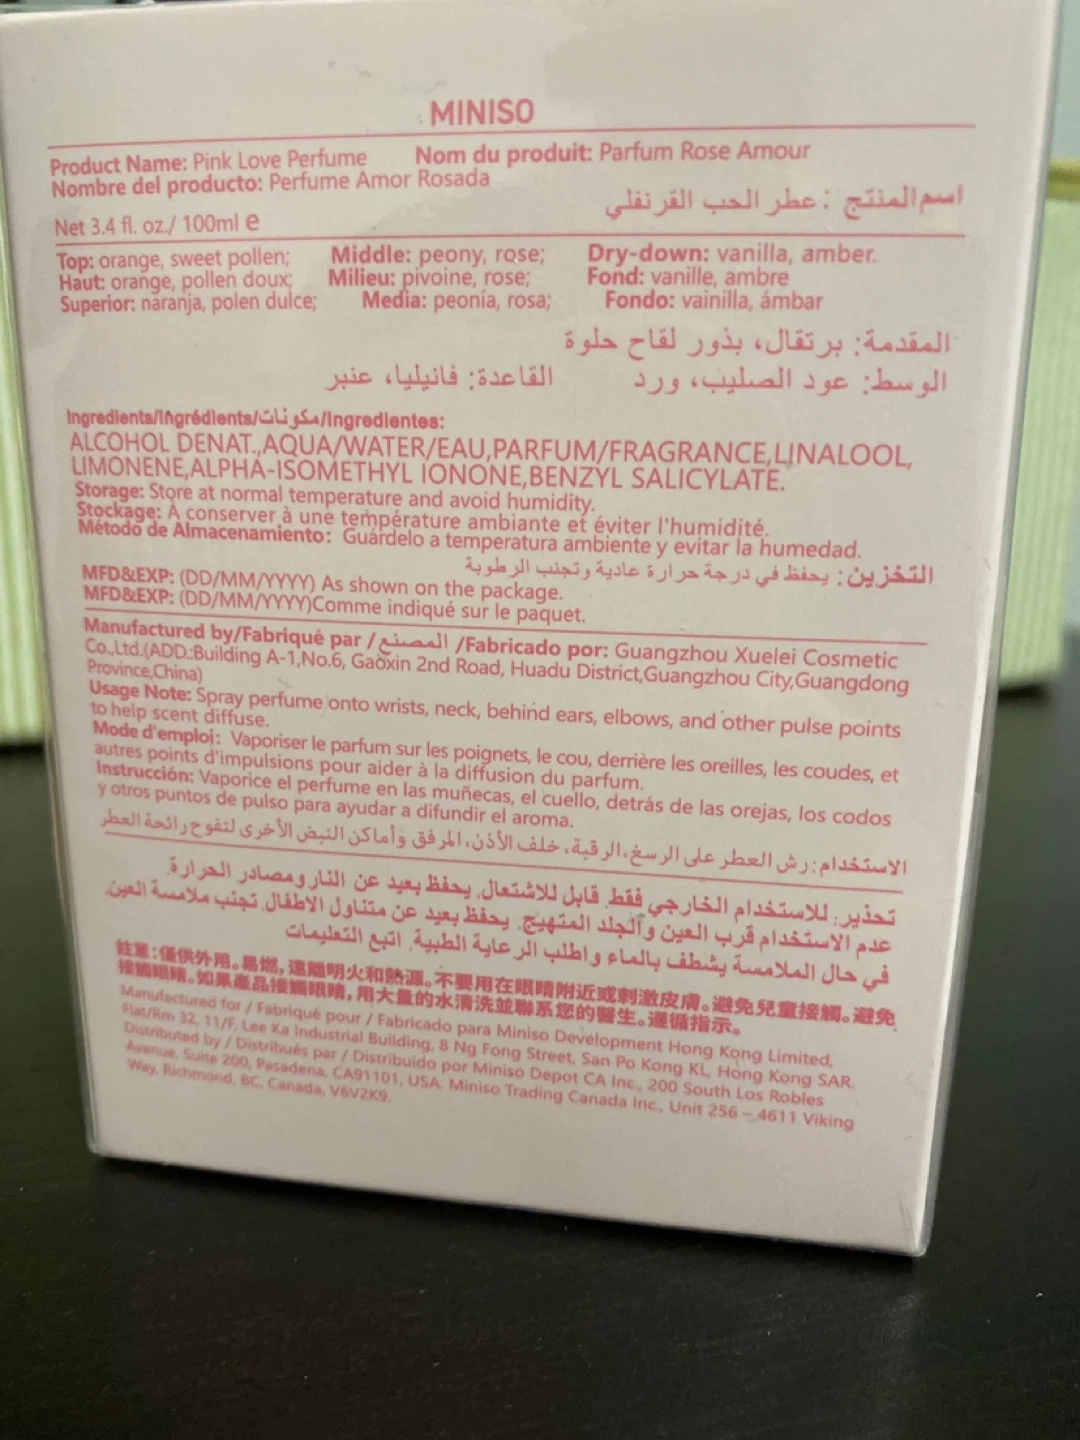 MINISO
Product Name: Pink Love Perfume Nom du produit: Parfum Rose Amour
Nombre del producto: Perfume Amor Rosada
اسم المنتج : عطر الحب القرنفلي
Net 3.4 fl. oz./ 100ml e
Top: orange, sweet pollen; Middle: peony, rose; Dry-down: vanilla, amber.
Haut: orange, pollen doux; Milieu: pivoine, rose; Fond: vanille, ambre
Superior: naranja, polen dulce; Media: peonía, rosa; Fondo: vainilla, ámbar
المقدمة: برتقال، بذور لقاح حلوة
الوسط: عود الصليب، ورد القاعدة: فانيليا، عنبر
Ingredients/Ingrédients/مكونات/Ingredientes:
ALCOHOL DENAT.,AQUA/WATER/EAU,PARFUM/FRAGRANCE,LINALOOL,
LIMONENE,ALPHA-ISOMETHYL IONONE,BENZYL SALICYLATE.
Storage: Store at normal temperature and avoid humidity.
Stockage: À conserver à une température ambiante et éviter l'humidité.
Método de Almacenamiento: Guárdelo a temperatura ambiente y evitar la humedad.
التخزين: يحفظ في درجة حرارة عادية وتجنب الرطوبة
MFD&EXP: (DD/MM/YYYY) As shown on the package.
MFD&EXP: (DD/MM/YYYY)Comme indiqué sur le paquet.
Manufactured by/Fabriqué par /المصنع /Fabricado por: Guangzhou Xuelei Cosmetic
Co.,Ltd.(ADD.:Building A-1,No.6, Gaoxin 2nd Road, Huadu District,Guangzhou City,Guangdong
Province,China)
Usage Note: Spray perfume onto wrists, neck, behind ears, elbows, and other pulse points
to help scent diffuse.
Mode d'emploi: Vaporiser le parfum sur les poignets, le cou, derrière les oreilles, les coudes, et
autres points d'impulsions pour aider à la diffusion du parfum.
Instrucción: Vaporice el perfume en las muñecas, el cuello, detrás de las orejas, los codos
y otros puntos de pulso para ayudar a difundir el aroma.
الاستخدام: رش العطر على الرسغ، الرقبة، خلف الأذن، المرفق وأماكن النبض الأخرى لتفوح رائحة العطر
تحذير: للاستخدام الخارجي فقط. قابل للاشتعال. يحفظ بعيد عن النار ومصادر الحرارة.
عدم الاستخدام قرب العين والجلد المتهيج. يحفظ بعيد عن متناول الاطفال. تجنب ملامسة العين.
في حال الملامسة يشطف بالماء واطلب الرعاية الطبية. اتبع التعليمات
註重：僅供外用。易燃，遠離明火和熱源。不要用在眼睛附近或刺激皮膚。避免兒童接觸。避免
接觸眼睛。如果產品接觸眼睛，用大量的水清洗並聯系您的醫生。遵循指示。
Manufactured for / Fabriqué pour / Fabricado para Miniso Development Hong Kong Limited,
Flat/Rm 32, 11/F, Lee Ka Industrial Building, 8 Ng Fong Street, San Po Kong KL, Hong Kong SAR.
Distributed by / Distribués par / Distribuido por Miniso Depot CA Inc., 200 South Los Robles
Avenue, Suite 200, Pasadena, CA91101, USA. Miniso Trading Canada Inc., Unit 256 – 4611 Viking
Way, Richmond, BC, Canada, V6V2K9.